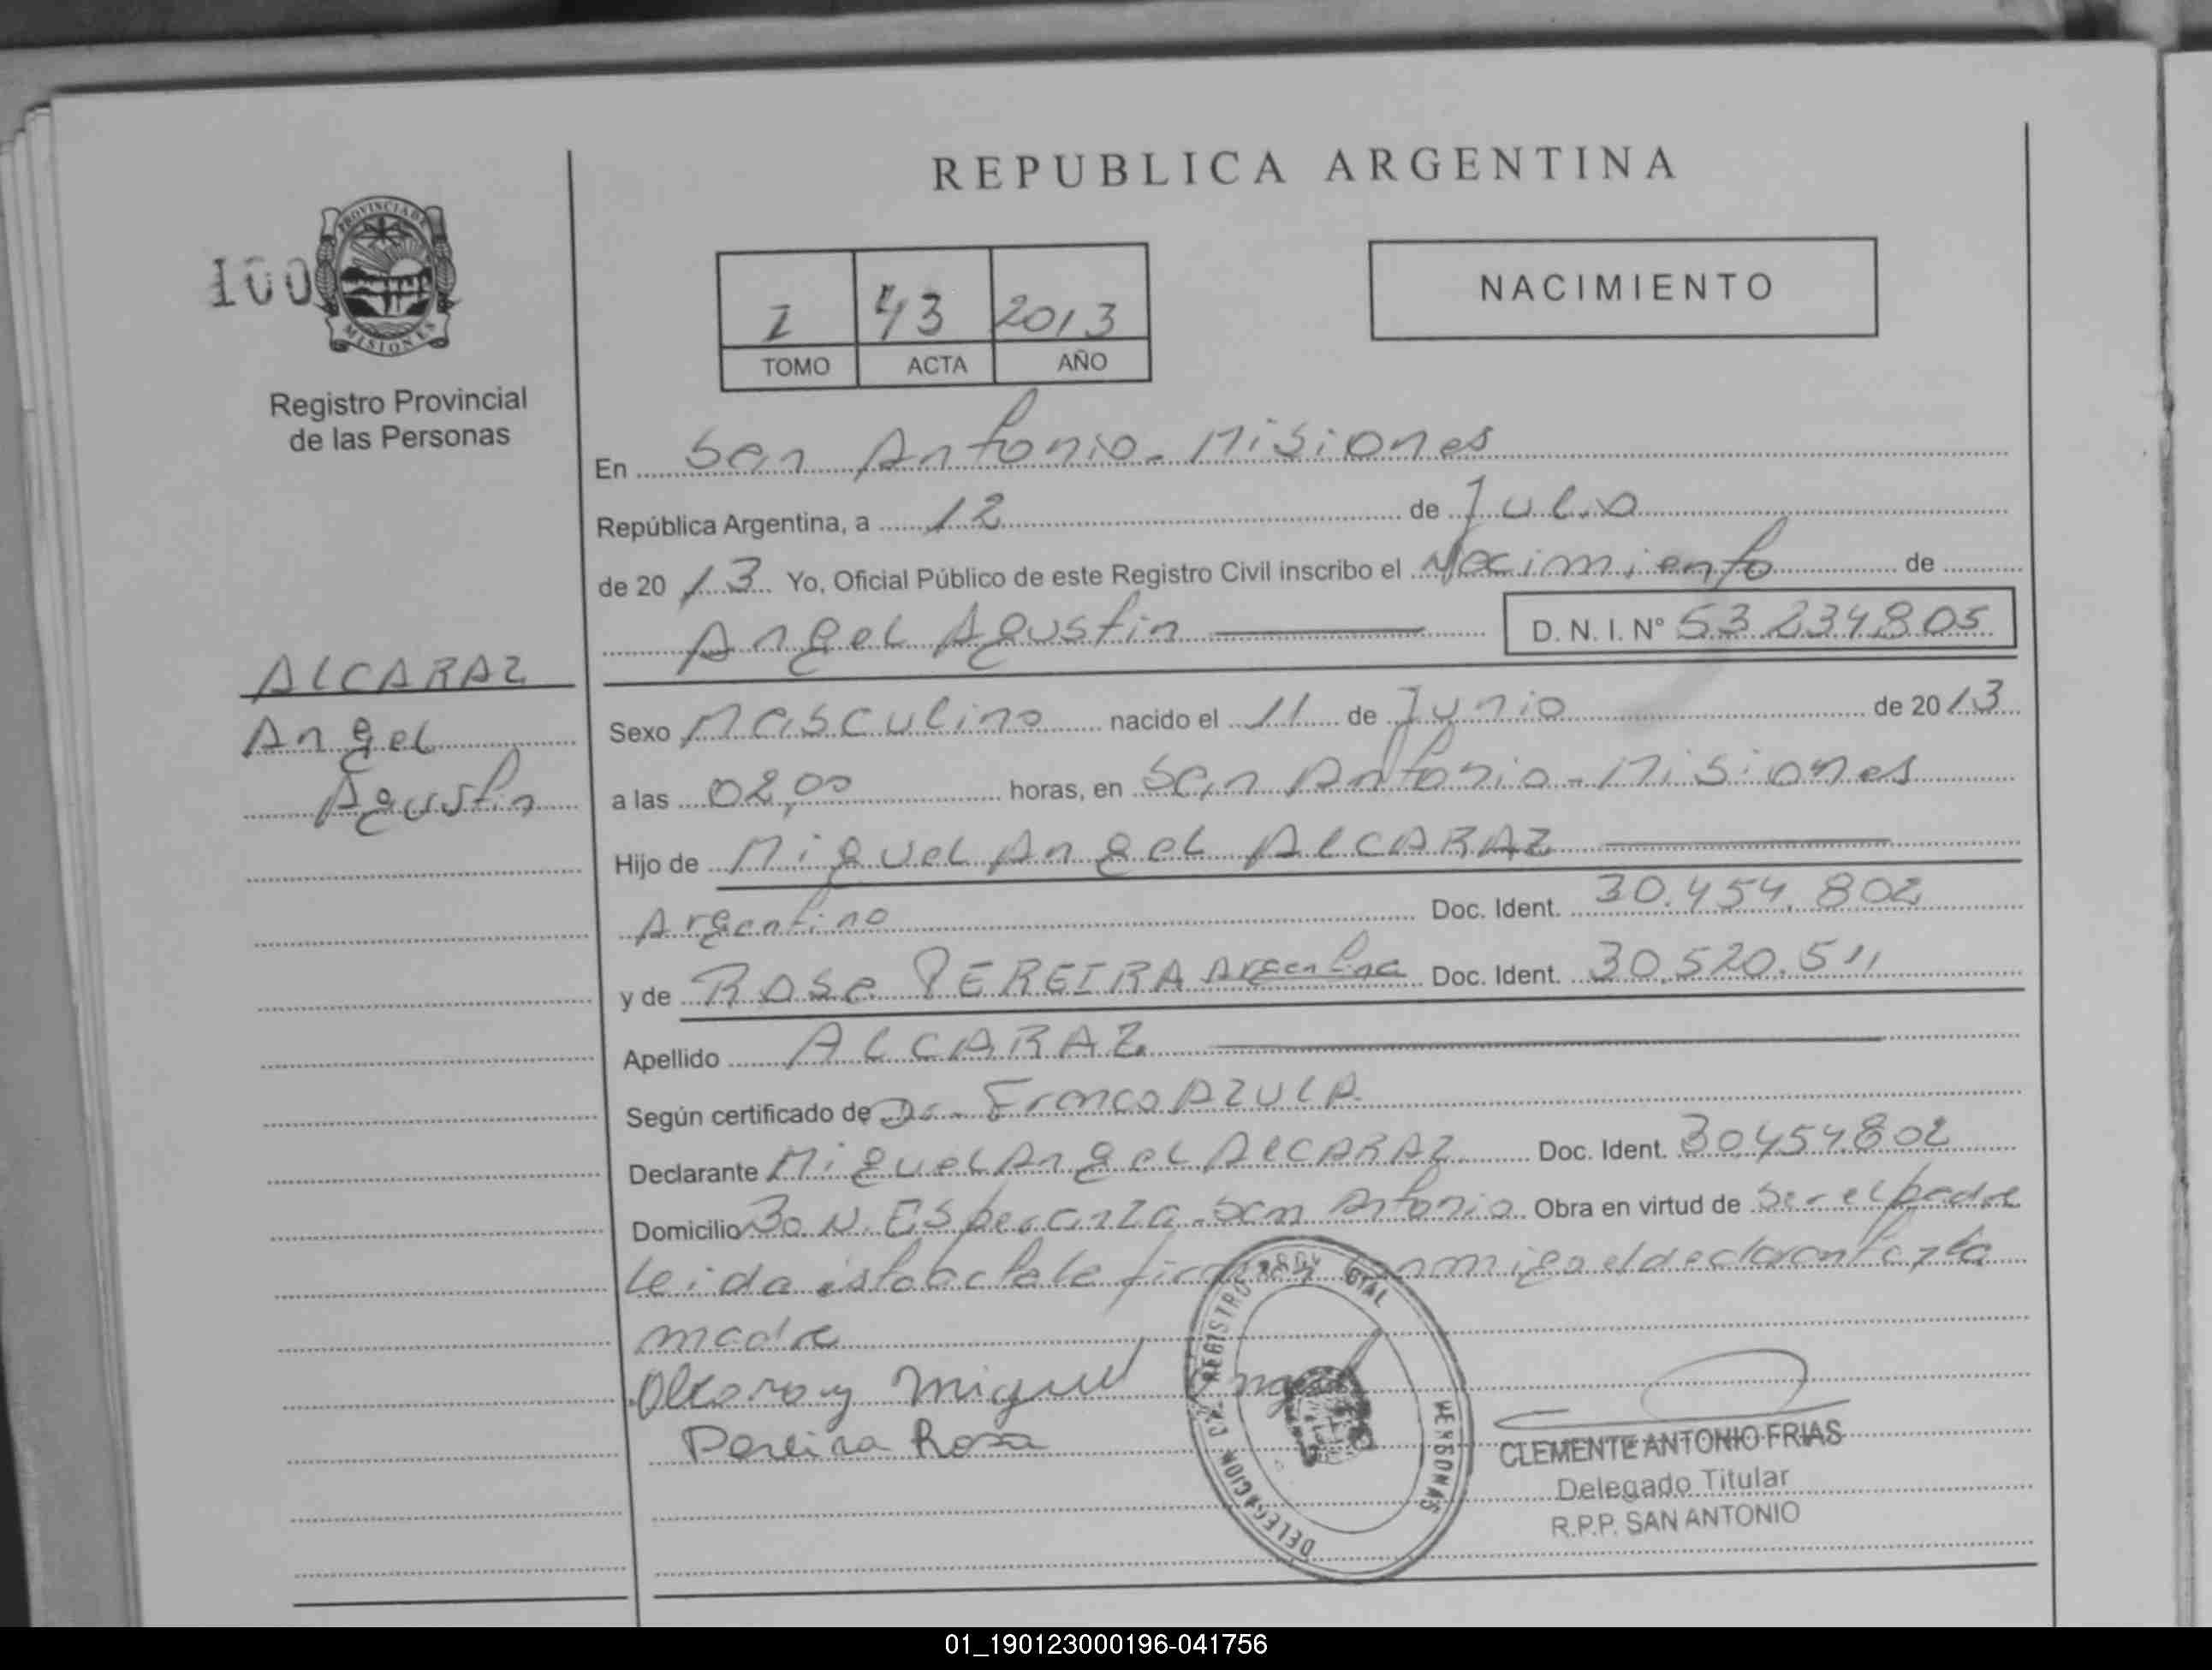 REPUBLICA ARGENTINA
100
PROVINCIA DE
MISIONES
Registro Provincial
de las Personas
I 43 2013
TOMO ACTA AÑO
NACIMIENTO
En San Antonio - Misiones
República Argentina, a 12 de Julio
de 2013 Yo, Oficial Público de este Registro Civil inscribo el Nacimiento de
Angel Agustin D. N. I. N° 53 234805
ALCARAZ
Angel
Agustin
Sexo Masculino nacido el 11 de Junio de 2013
a las 02,00 horas, en San Antonio - Misiones
Hijo de Miguel Angel ALCARAZ
Argentino Doc. Ident. 30.454.802
y de Rosa PEREIRA Argentina Doc. Ident. 30.520.511
Apellido ALCARAZ
Según certificado de Dr. Franco AZULA
Declarante Miguel Angel ALCARAZ Doc. Ident. 30454802
Domicilio Bo N. Esperanza - San Antonio Obra en virtud de Ser el padre
Leida esta acta la firma conmigo el declarante y la
madre
Alcaraz Miguel Angel
Pereira Rosa
DELEGACION REGISTRO PERSONAS
CLEMENTE ANTONIO FRIAS
Delegado Titular
R.P.P. SAN ANTONIO
01_190123000196-041756